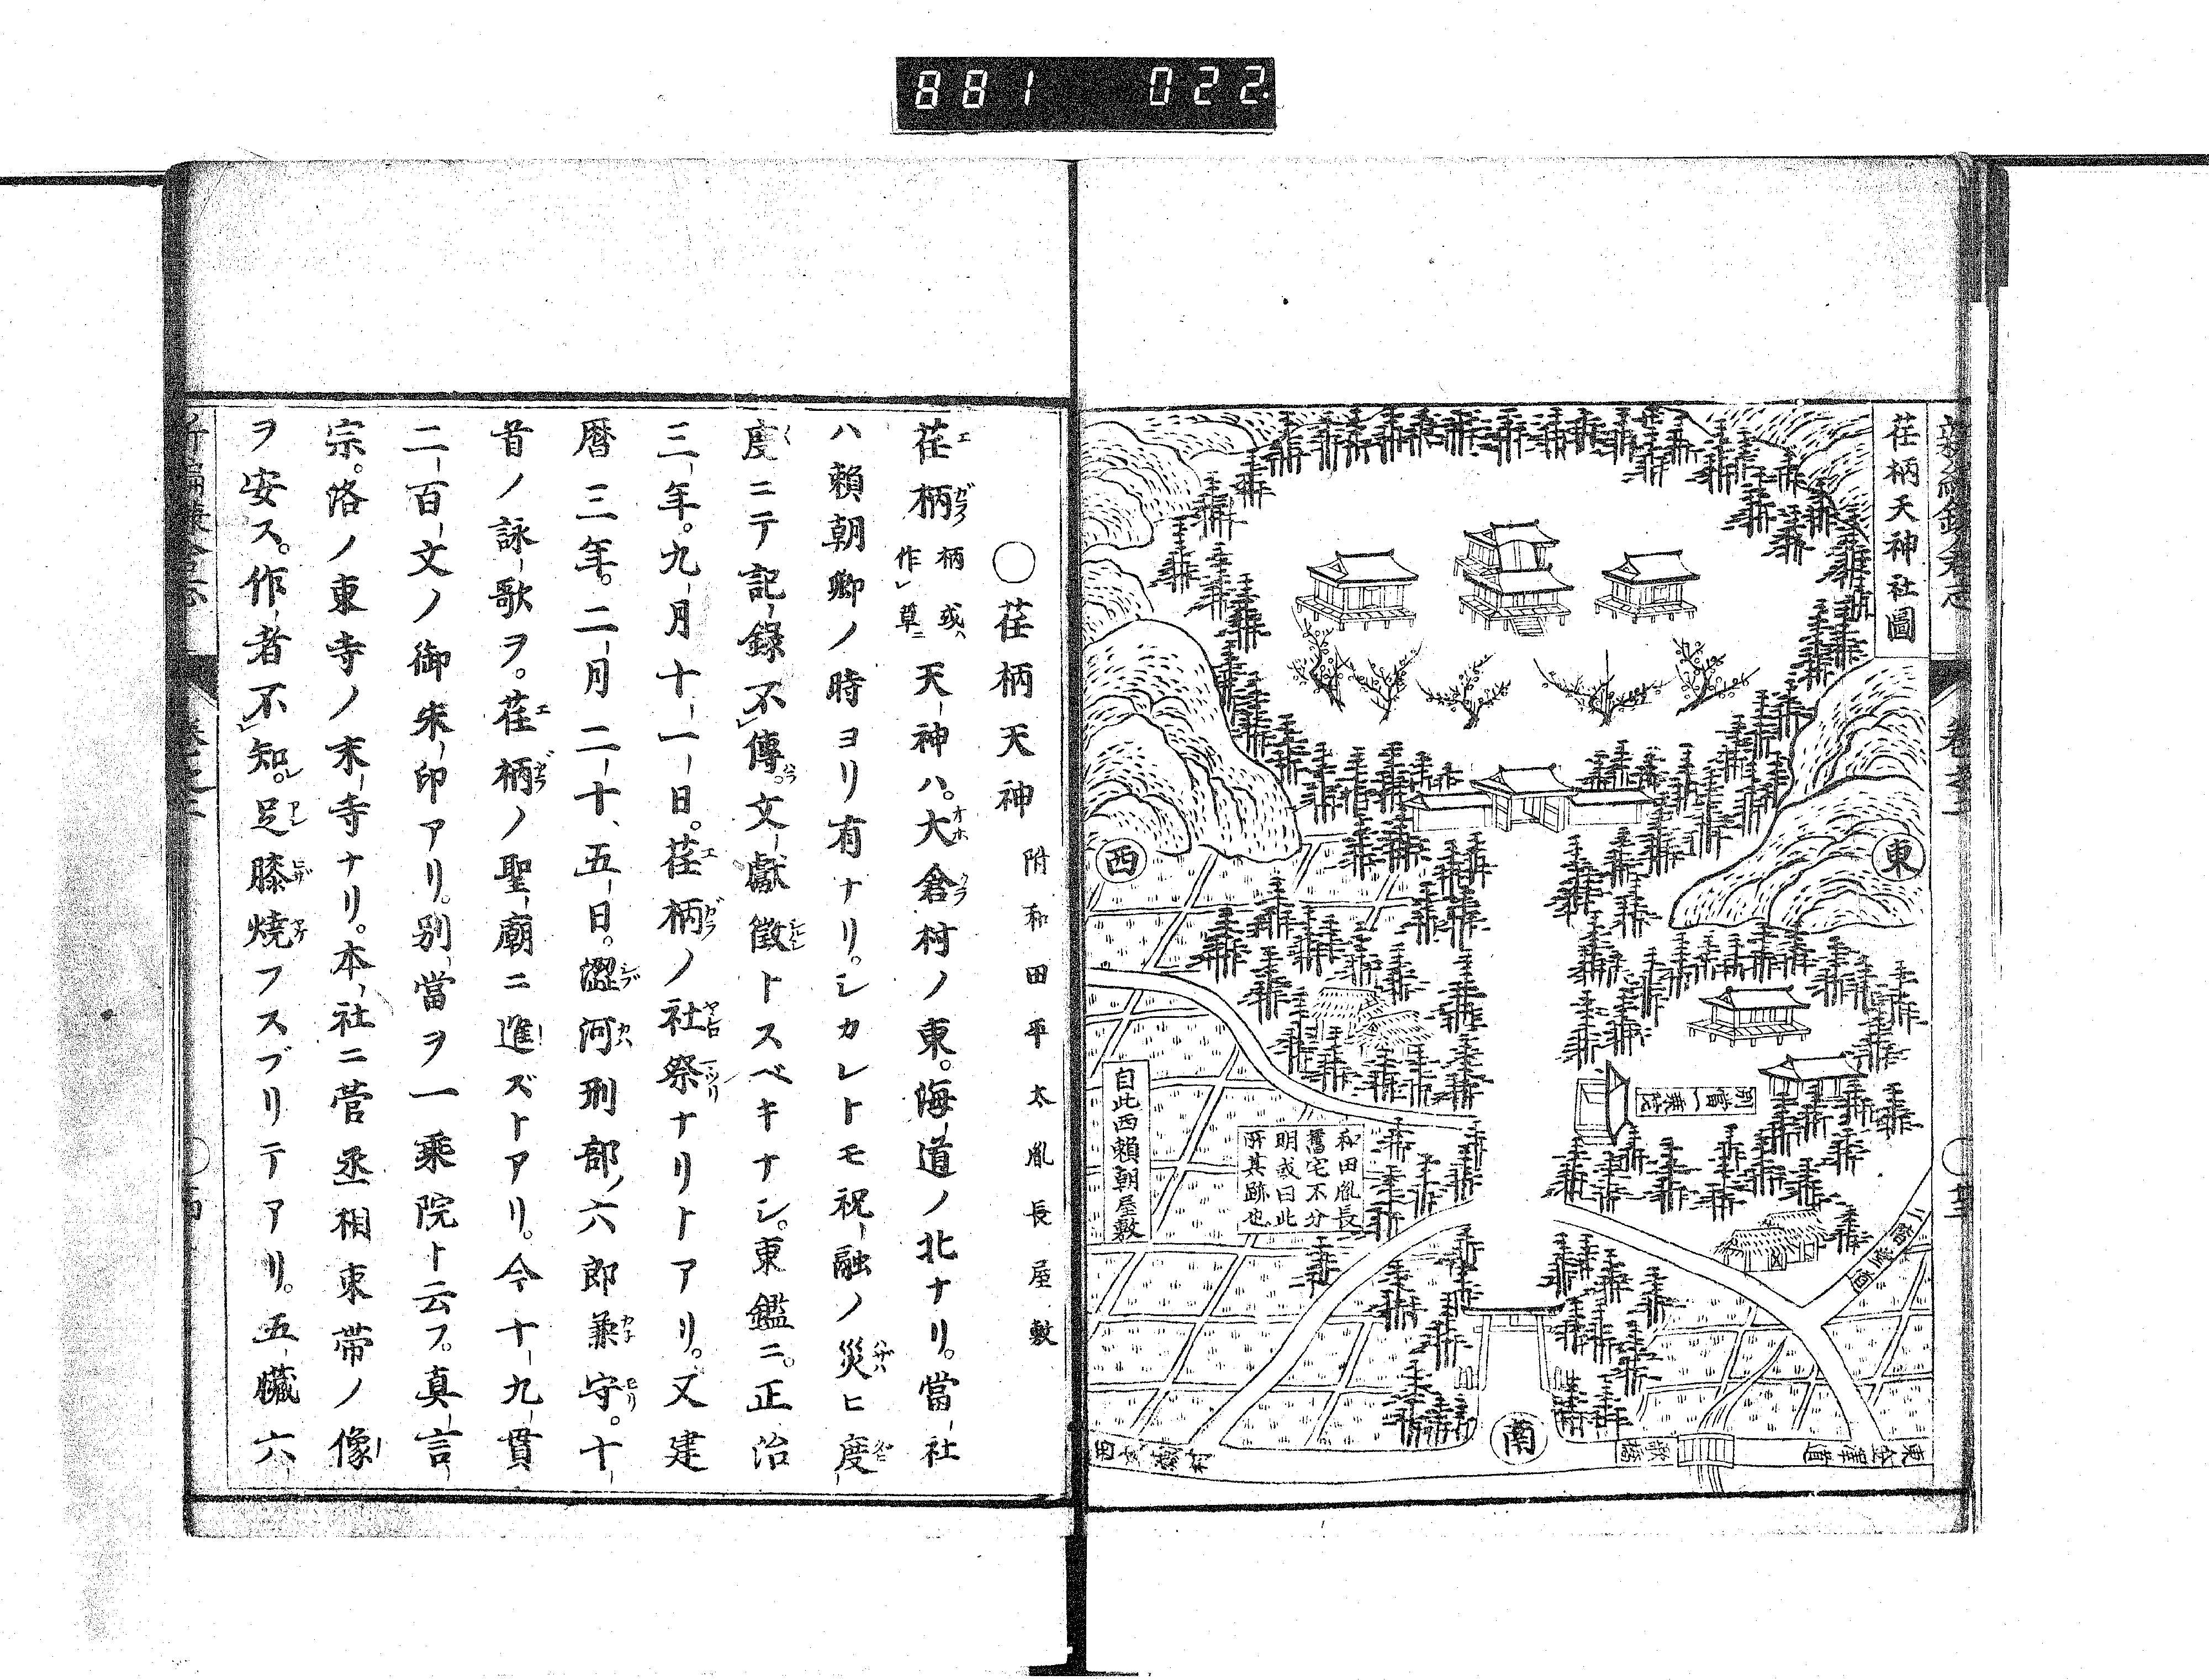 881 022
荏柄天神社圖
東
西
南
別當一乘院
和田胤長
舊宅不分
明或曰此
所其跡也
自此西賴朝屋敷
二階堂道
東金澤道
歌橋
○荏柄天神 附和田平太胤長屋敷
荏柄 柄或ハ作草ニ 天神ハ。大倉村ノ東。海道ノ北ナリ。當社
ハ賴朝卿ノ時ヨリ有ナリ。シカレトモ祝融ノ災ヒ度
度ニテ記錄不傳。文獻徵トスベキナシ。東鑑ニ。正治
三年。九月十一日。荏柄ノ社祭ナリトアリ。又建
曆三年。二月二十五日。澀河刑部六郎兼守。十
首ノ詠歌ヲ。荏柄ノ聖廟ニ進ズトアリ。今十九貫
二百文ノ御朱印アリ。別當ヲ一乘院ト云フ。真言
宗。洛ノ東寺ノ末寺ナリ。本社ニ菅丞相束帶ノ像
ヲ安ス。作者不知。足膝燒フスブリテアリ。五臟六